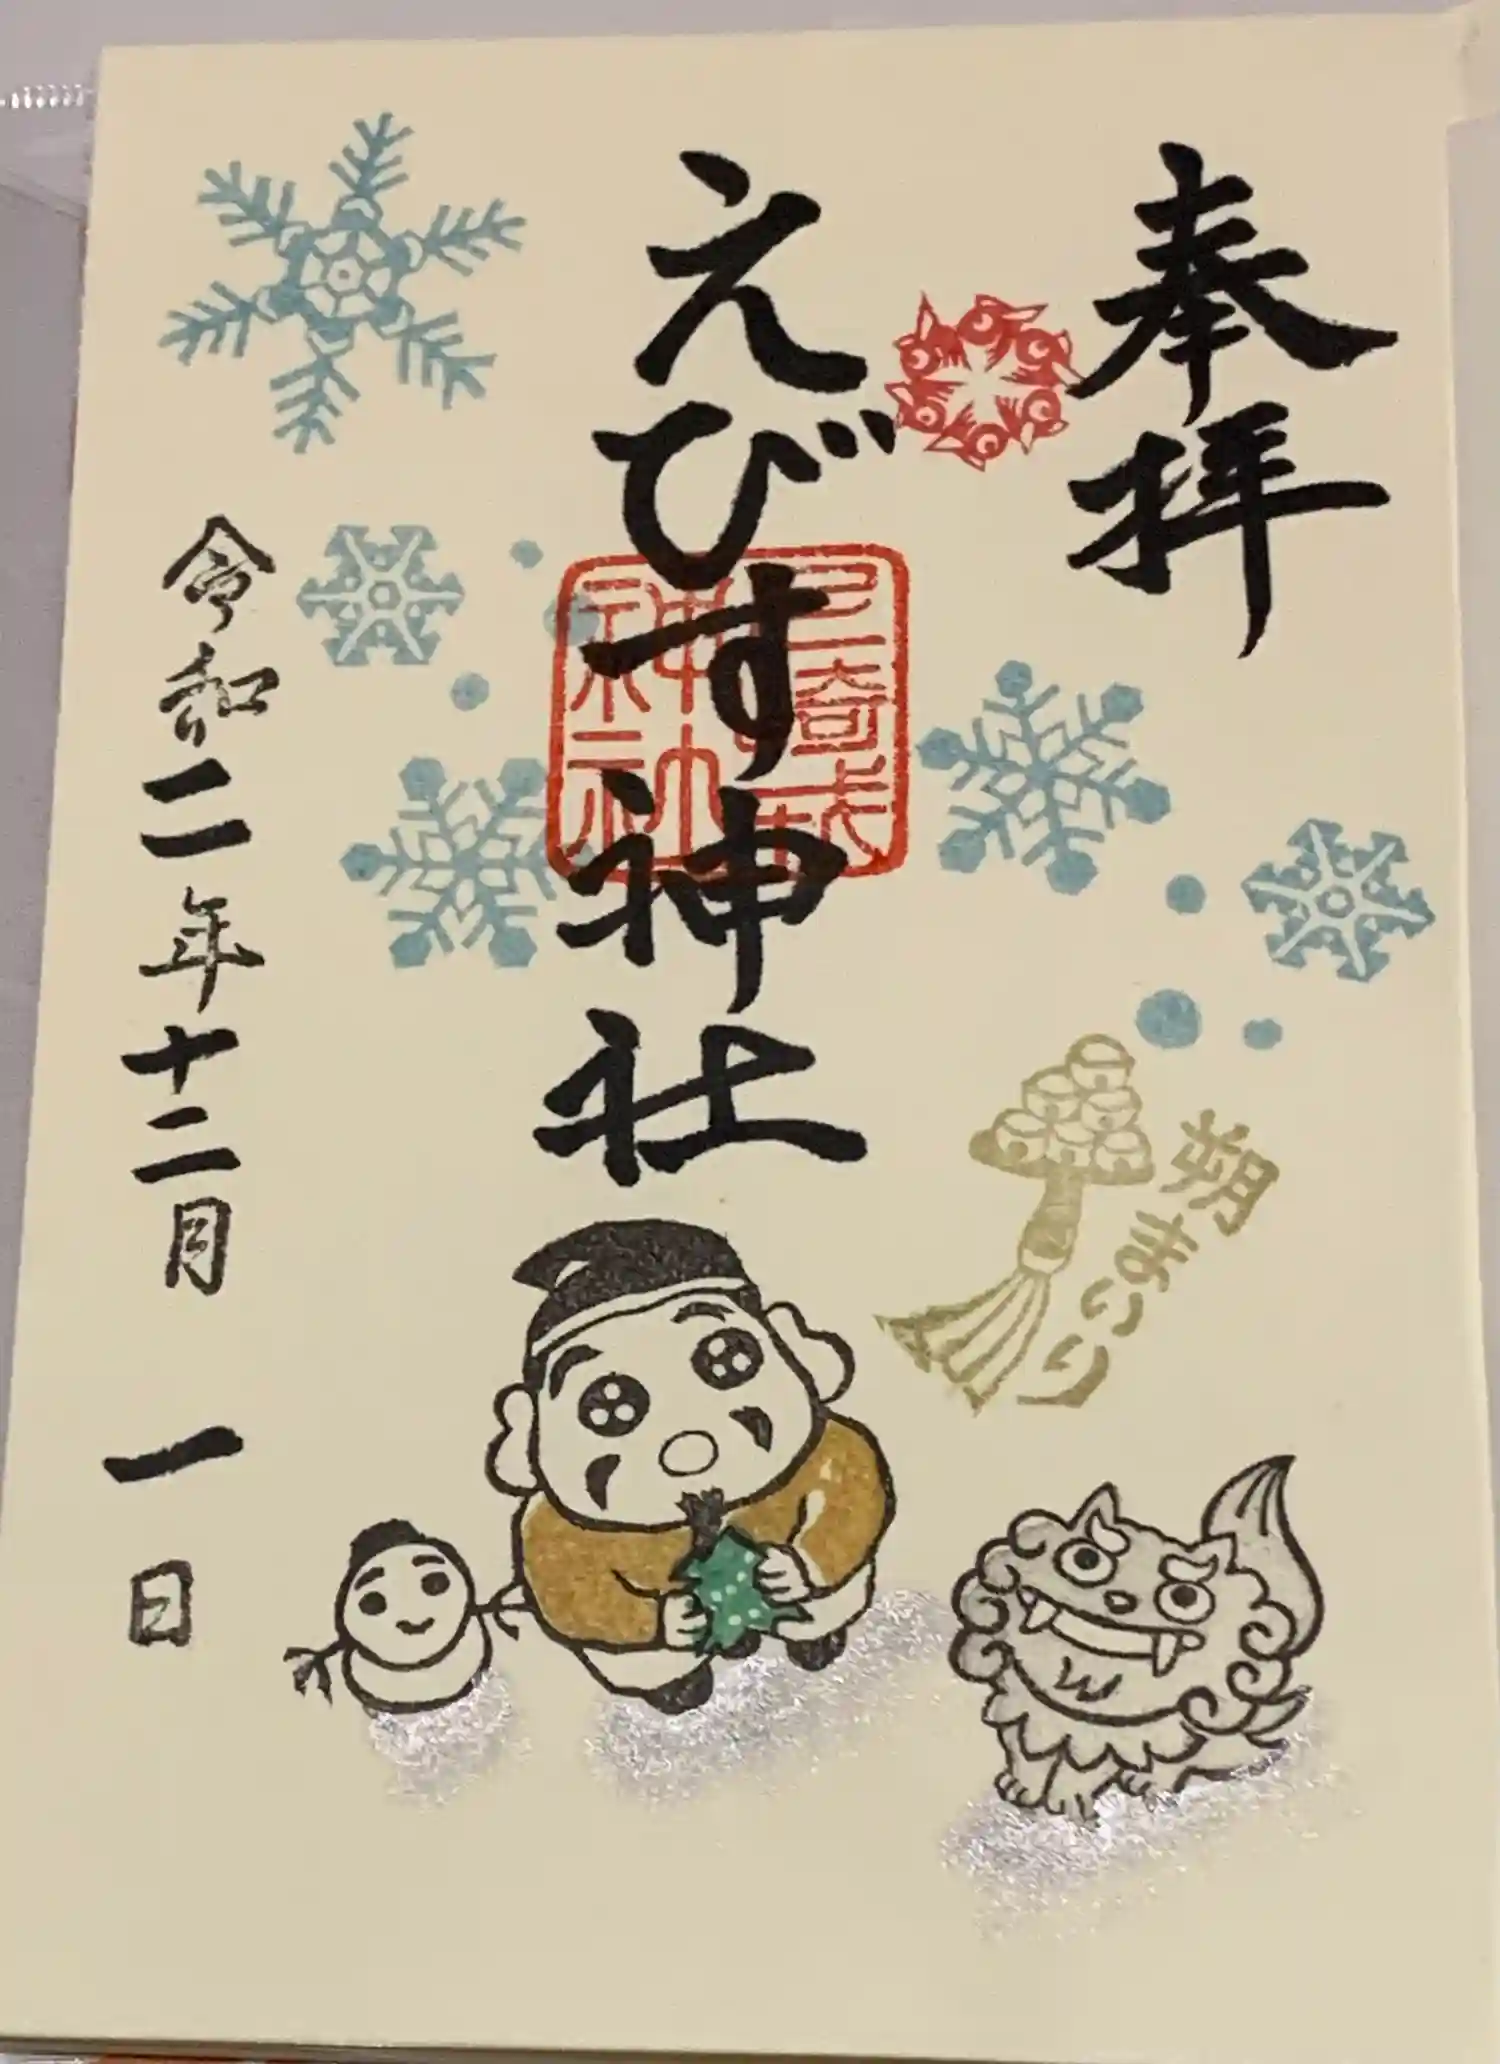 奉拝
えびす神社
令和二年十二月 一日
朔まいり
神社